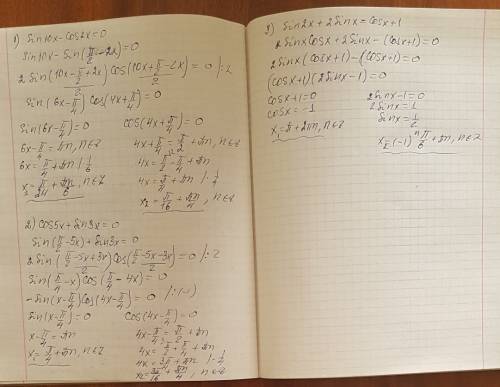 1) sin10x-cos2x=0
sin10x-sin(π/2-2x)=0
2sin(10x-π/2+2x)/2 cos(10x+π/2-2x)/2=0 |:2
sin(6x-π/4)cos(4x+π/4)=0
sin(6x-π/4)=0
6x-π/4=πn, n∈Z
6x=π/4+πn |·1/6
x₁=π/24+πn/6, n∈Z
cos(4x+π/4)=0
4x+π/4=π/2+πn, n∈Z
4x=π/2-π/4+πn
4x=π/4+πn |·1/4
x₂=π/16+πn/4, n∈Z
2) cos5x+sin3x=0
sin(π/2-5x)+sin3x=0
2sin(π/2-5x+3x)/2 cos(π/2-5x-3x)/2=0 |:2
sin(π/4-x)cos(π/4-4x)=0
-sin(x-π/4)cos(4x-π/4)=0 |:(-1)
sin(x-π/4)=0
x-π/4=πn
x₁=π/4+πn, n∈Z
cos(4x-π/4)=0
4x-π/4=π/2+πn
4x=π/2+π/4+πn
4x=3π/4+πn |·1/4
x₂=3π/16+πn/4, n∈Z
3) sin2x+2sinx=cosx+1
2sinxcosx+2sinx-(cosx+1)=0
2sinx(cosx+1)-(cosx+1)=0
(cosx+1)(2sinx-1)=0
cosx+1=0
cosx=-1
x₁=π+2πn, n∈Z
2sinx-1=0
2sinx=1
sinx=1/2
x₂=(-1)ⁿπ/6+πn, n∈Z